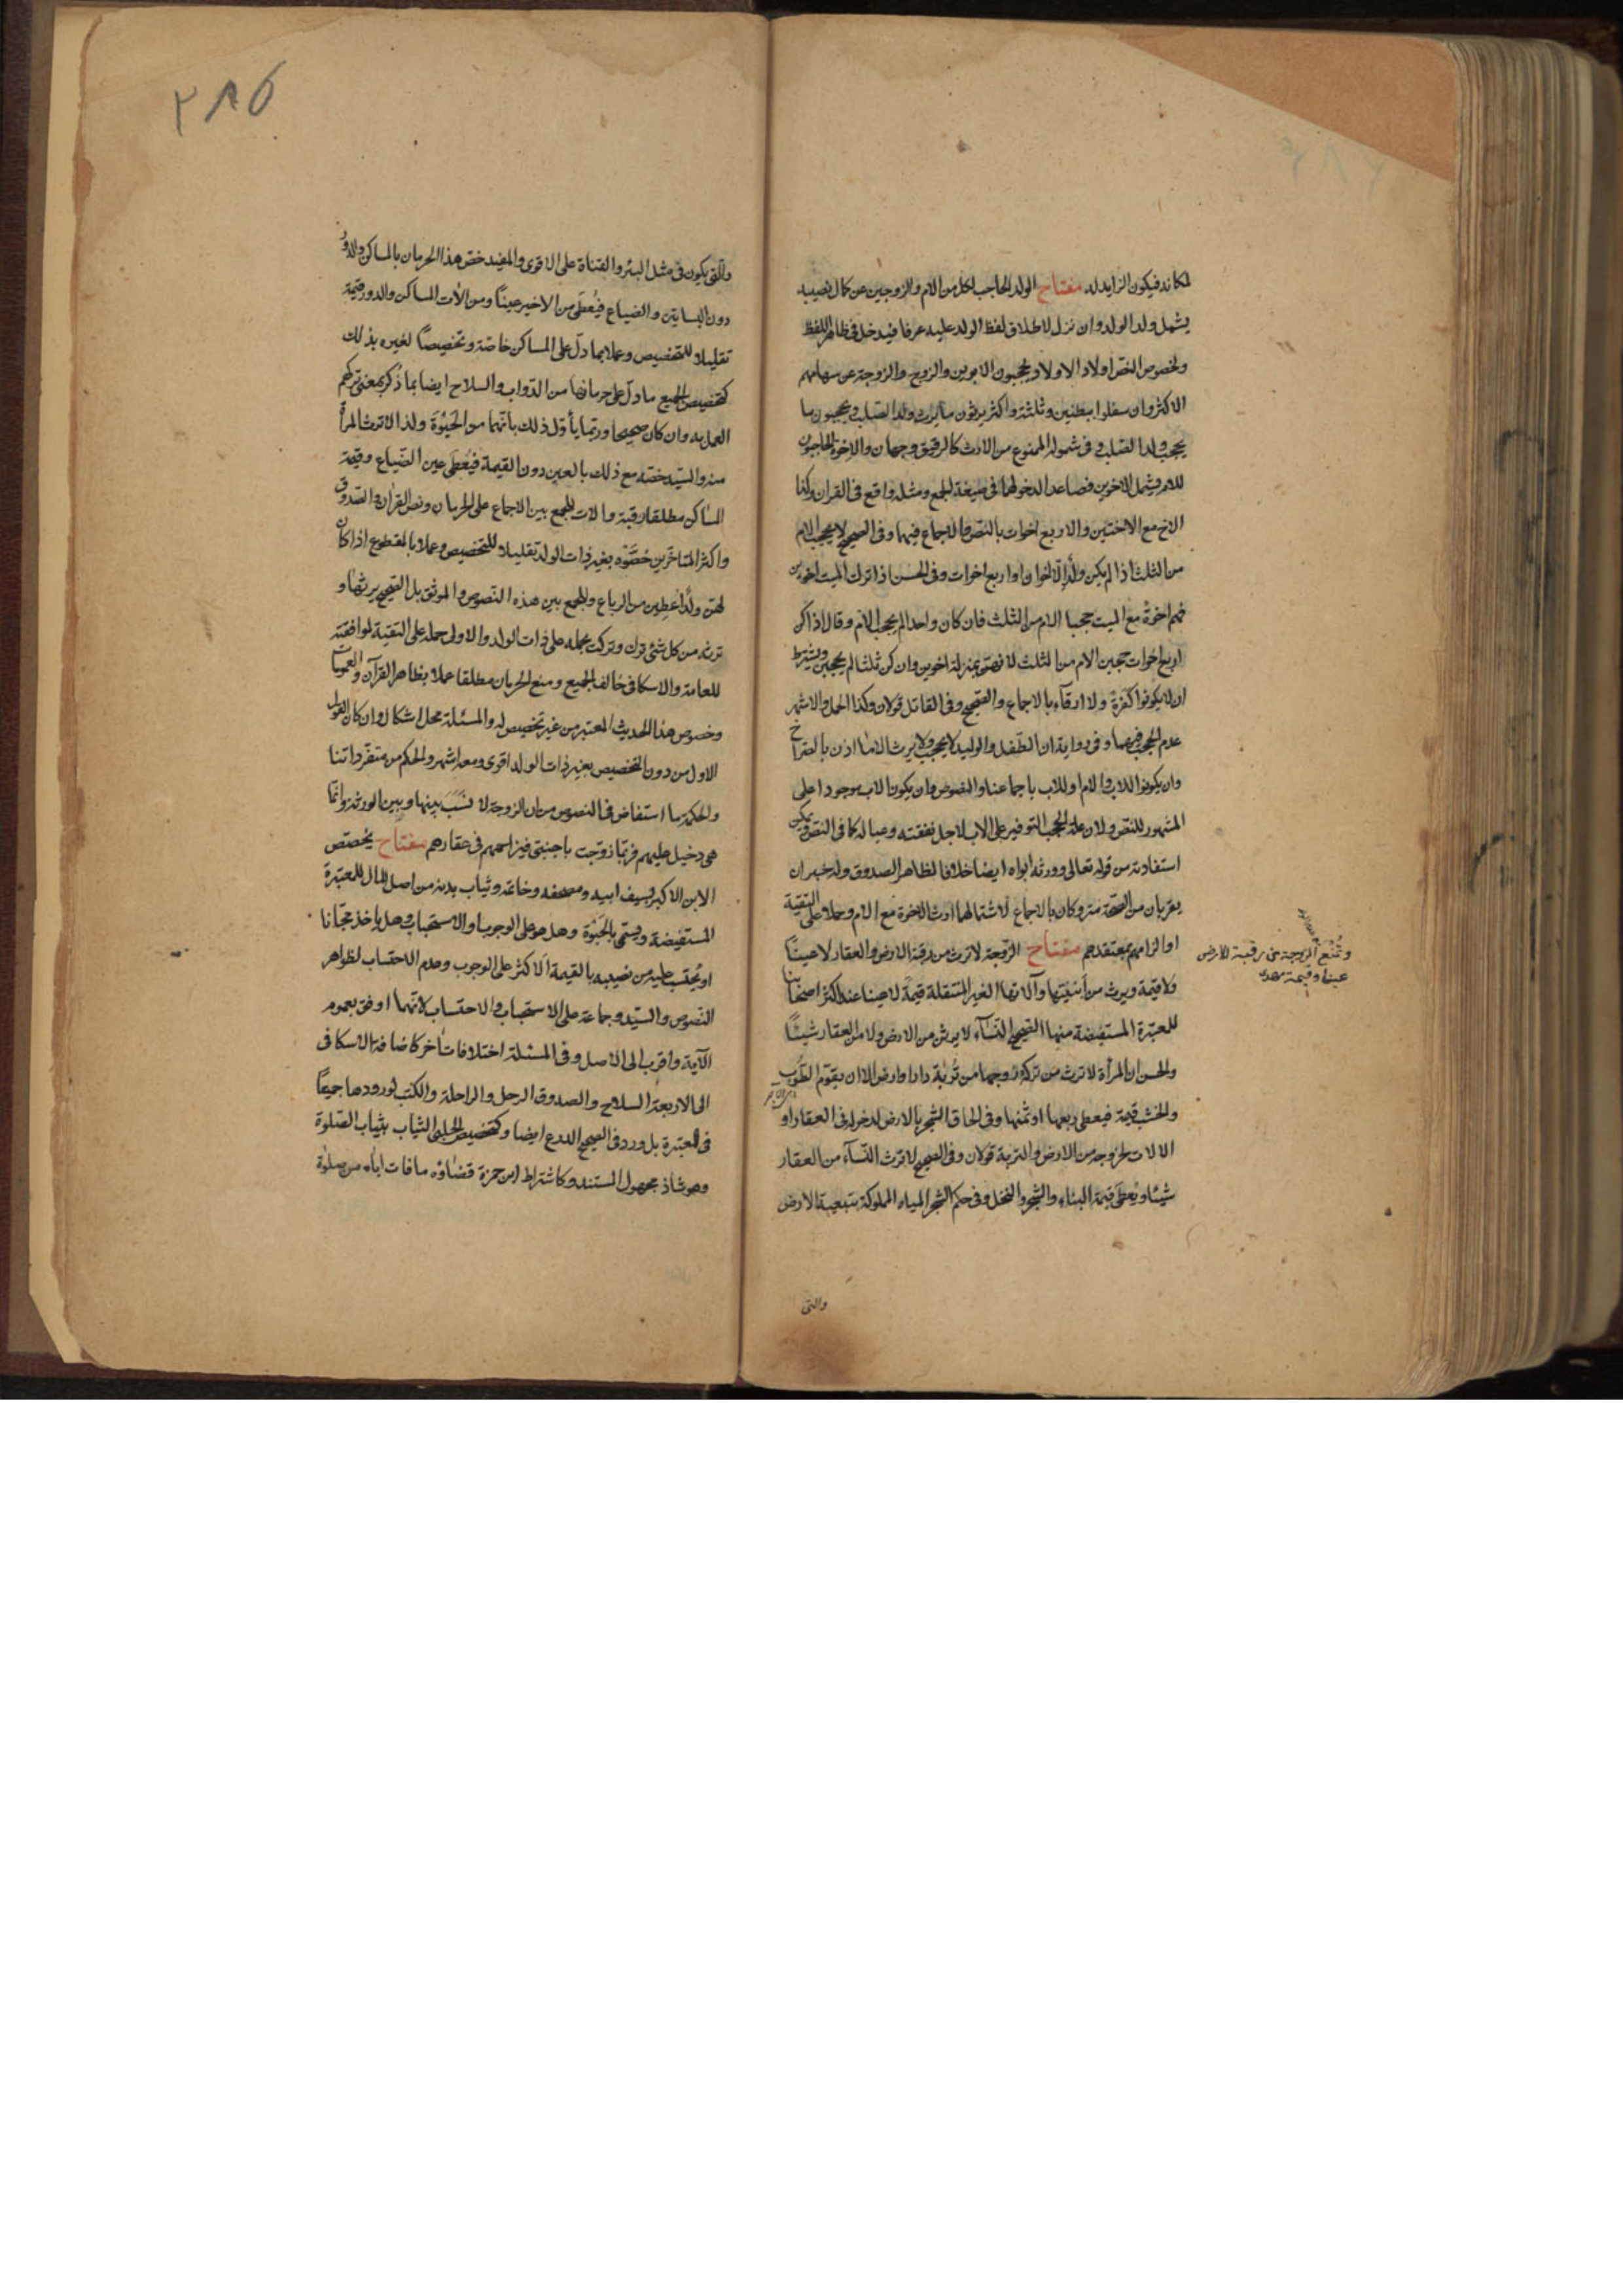 لمكانه فيكون الزايد له مفتاح الولد الحاجب لكل من الام والزوجين عن كمال نصيبه
يشمل ولد الولد وان نزل لاطلاق لفظ الولد عليه عرفا فيدخل فى ظاهر اللفظ
ولخصوص النص اولاد الاولاد يحجبون الابوين والزوج والزوجة عن سهامهم
الاكثر وان سفلوا ببطنين وثلثة واكثر يرثون ما يرث ولد الصلب ويحجبون ما
يحجب ولد الصلب وفى شموله الممنوع من الارث كالرقيق وجهان والاخوة الحاجبون
للام يشمل الاخوين فصاعدا لدخولهما فى صيغة الجمع ومثله واقع فى القران وكذا
الاخ مع الاختين والاربع اخوات بالنص والاجماع فيهما وفى الصحيح لا يحجب الام
من الثلث اذا لم يكن ولد الا اخوان او اربع اخوات وفى الحسن اذا ترك الميت اخوين
فهم اخوة مع الميت حجبا الام من الثلث فان كان واحدا لم يحجب الام وقال اذا كن
اربع اخوات حجبن الام من الثلث لانهن بمنزلة اخوين وان كن ثلثا لم يحجبن ويشترط
ان لا يكونوا كفرة ولا ارقآء بالاجماع والصحيح وفى القاتل قولان وكذا الحمل والاشهر
عدم الحجب فيهما وفى رواية ان الطفل والوليد لا يحجب ولا يرث الا ما اذن بالصراخ
وان يكونوا للاب والام او للاب باجماعنا والنصوص وان يكون الاب موجودا على
المشهور للنص ولان علة الحجب التوفير على الاب لاجل نفقته وعياله كما فى النص ويمكن
استفادته من قوله تعالى وورثه ابواه ايضا خلافا لظاهر الصدوق وله خبران
يعربان من الصحة متروكان بالاجماع لاشتمالهما ارث الاخوة مع الام وحملا على التقية
او الزامهم بمعتقدهم مفتاح الزوجة لا ترث من رقبة الارض والعقار لا عينًا
ولا قيمة ويرث من ابنيتها وآلاتها الغير المنتقلة قيمة لا عينا عند اكثر اصحابنا
للمعتبرة المستفيضة منها الصحيح النسآء لا يرثن من الارض ولا من العقار شيئًا
والحسن ان المرأة لا ترث من تركة زوجها من تربة دار او ارض الا ان يقوم الطوب
والخشب قيمة فيعطى ربعها او ثمنها وفى الحاق الشجر بالارض لدخوله فى العقار او
الالات لخروجه من الارض والتربة قولان وفى الصحيح لا ترث النسآء من العقار
شيئا ويعطى قيمة البناء والشجر والنخل وفى حكم الشجر المياه المملوكة بتبعية الارض
والتى
وتمنع الزوجة من رقبة الارض
عينا وقيمة
٢٨٥
والتى يكون فى مثل البئر والقناة على الاقوى والمفيد خص هذا الحرمان بالمساكن والدور
دون البساتين والضياع فيعطى من الاخير عينًا ومن الات المساكن والدور قيمة
تقليلا للتخصيص وعملا بما دل على المساكن خاصة وتخصيصًا لغيره بذلك
كتخصيص الجميع ما دل على حرمانها من الدواب والسلاح ايضا بما ذكر بمعنى تركهم
العمل به وان كان صحيحا وربما ياول ذلك بانهما من الحبوة ولذا لا ترث المرأة
منه والسيد خصه مع ذلك بالعين دون القيمة فيعطى عين الضياع وقيمة
المساكن مطلقا رقبة والات للجمع بين الاجماع على الحرمان ونص القران والصدوق
واكثر المتاخرين خصوه بغير ذات الولد تقليلا للتخصيص وعملا بالمقطوع اذا كان
لهن ولد اعطين من الرباع والجمع بين هذه النصوص والموثق بل الصحيح يرثها و
ترثه من كل شئ ترك وتركت بحمله على ذات الولد والاولى حمله على التقية لموافقته
للعامة والاسكافى خالف الجميع ومنع الحرمان مطلقا عملا بظاهر القرآن والعمومات
وخصوص هذا الحديث المعتبر من غير تخصيص له والمسئلة محل اشكال وان كان القول
الاول من دون التخصيص بغير ذات الولد اقوى ومعه اشهر والحكم من متفرداتنا
والحكمة ما استفاض فى النصوص من ان الزوجة لا نسب بينها وبين الورثة وانما
هى دخيل عليهم فربما تزوجت باجنبى فيزاحمهم فى عقارهم مفتاح يختص
الابن الاكبر بسيف ابيه ومصحفه وخاتمه وثياب بدنه من اصل المال للمعتبرة
المستفيضة ويسمى بالحبوة وهل هو على الوجوب او الاستحباب وهل ياخذ مجانا
او يحتسب عليه من نصيبه بالقيمة الاكثر على الوجوب وعدم الاحتساب لظواهر
النصوص والسيد وجماعة على الاستحباب والاحتساب لانهما اوفق بعموم
الآية واقرب الى الاصل وفى المسئلة اختلافات اخر كاضافة الاسكافى
الى الاربعة السلاح والصدوق الرحل والراحلة والكتب لورودها جميعًا
فى المعتبرة بل ورد فى الصحيح الدرع ايضا وكتخصيص الحلبى الثياب بثياب الصلوة
وهو شاذ مجهول المستند وكاشتراط ابن حمزة قضاؤه ما فات اباه من صلوة